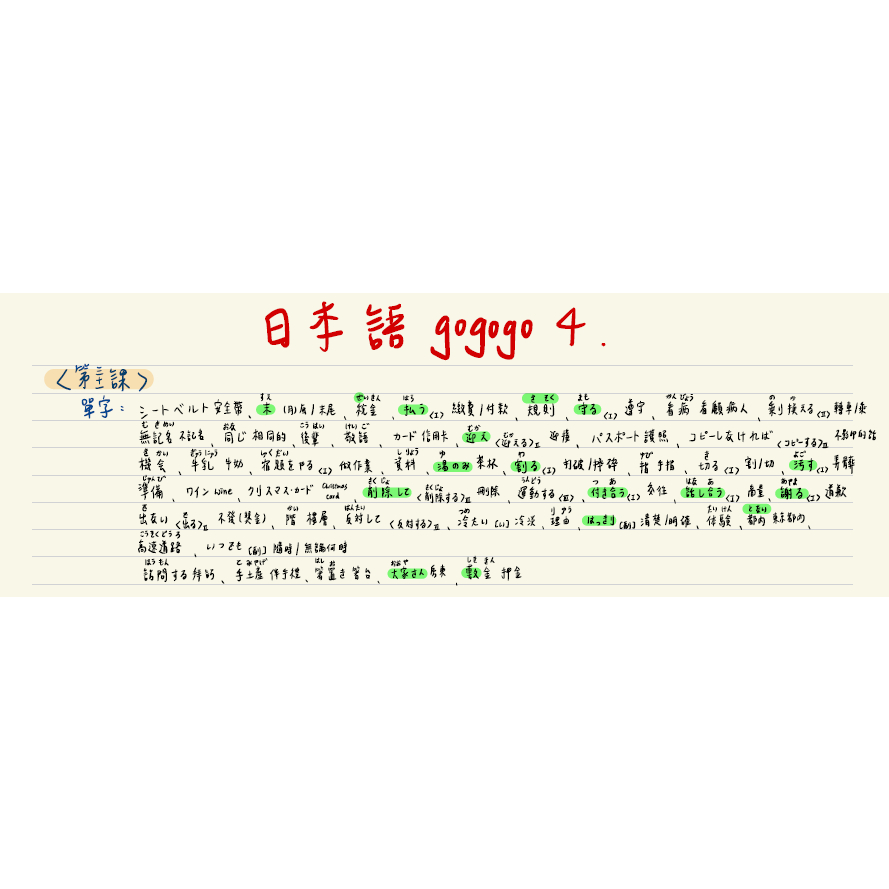 日本語 gogogo 4.
〈第三課〉
單字： シートベルト 安全帶、末 (月)底/末尾、税金、払う(I) 繳費/付款、規則、守る(I) 遵守、看病 看顧病人、乗り換える(II) 轉車/乘
無記名 不記名、同じ 相同的、後輩、敬語、カード 信用卡、迎え(迎える)II 迎接、パスポート 護照、コピーしなければ(コピーする)II 不影印的話
機会、牛乳 牛奶、宿題をやる(I) 做作業、資料、湯のみ 茶杯、割る(I) 打破/摔碎、指 手指、切る(I) 割/切、汚す(I) 弄髒
準備、ワイン wine、クリスマス・カード christmas card、削除して(削除する)II 刪除、運動する(III)、付き合う(I) 交往、話し合う(I) 商量、謝る(I) 道歉
出ない(出る)II 不發(獎金)、階 樓層、反対して(反対する)II、冷たい(い) 冷淡、理由、はっきり(副) 清楚/明確、体験、都内 東京都内、
高速道路、いつでも(副) 隨時/無論何時
訪問する 拜訪、手土産 伴手禮、箸置き 筷台、大家さん 房東、敷金 押金